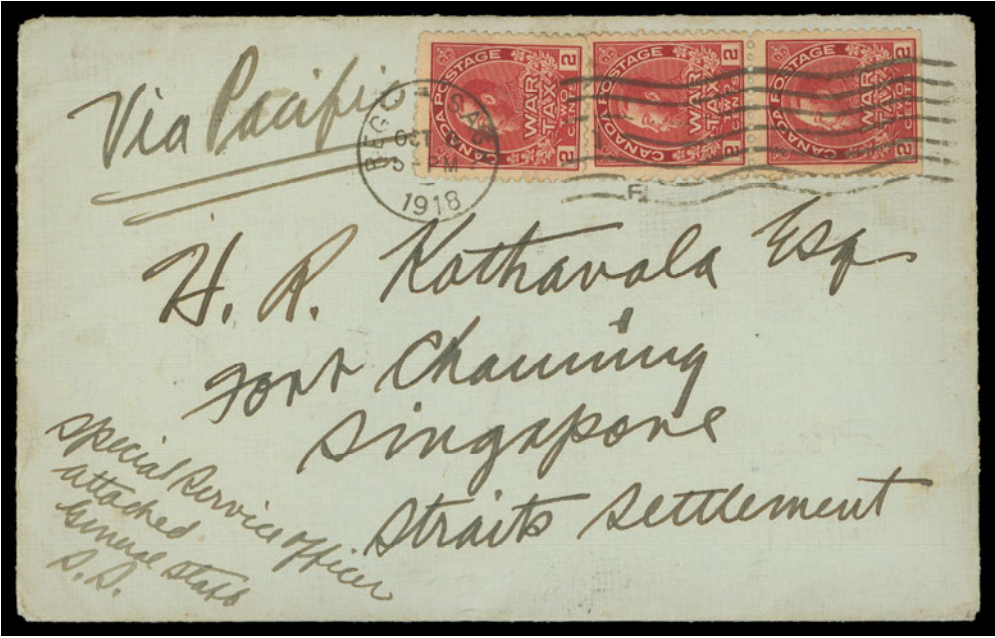 Via Pacific
CANADA POSTAGE
WAR
TAX
2 CENTS 2
CANADA POSTAGE
WAR
TAX
2 TWO CENTS 2
CANADA POSTAGE
WAR
TAX
2 TWO CENTS 2
REG SAS
OCT
PM
1918
F.
H. R. Kothavala Esq
Fort Channing
Singapore
Straits Settlement
Special Service officer
attached.
General Staff
S.S.